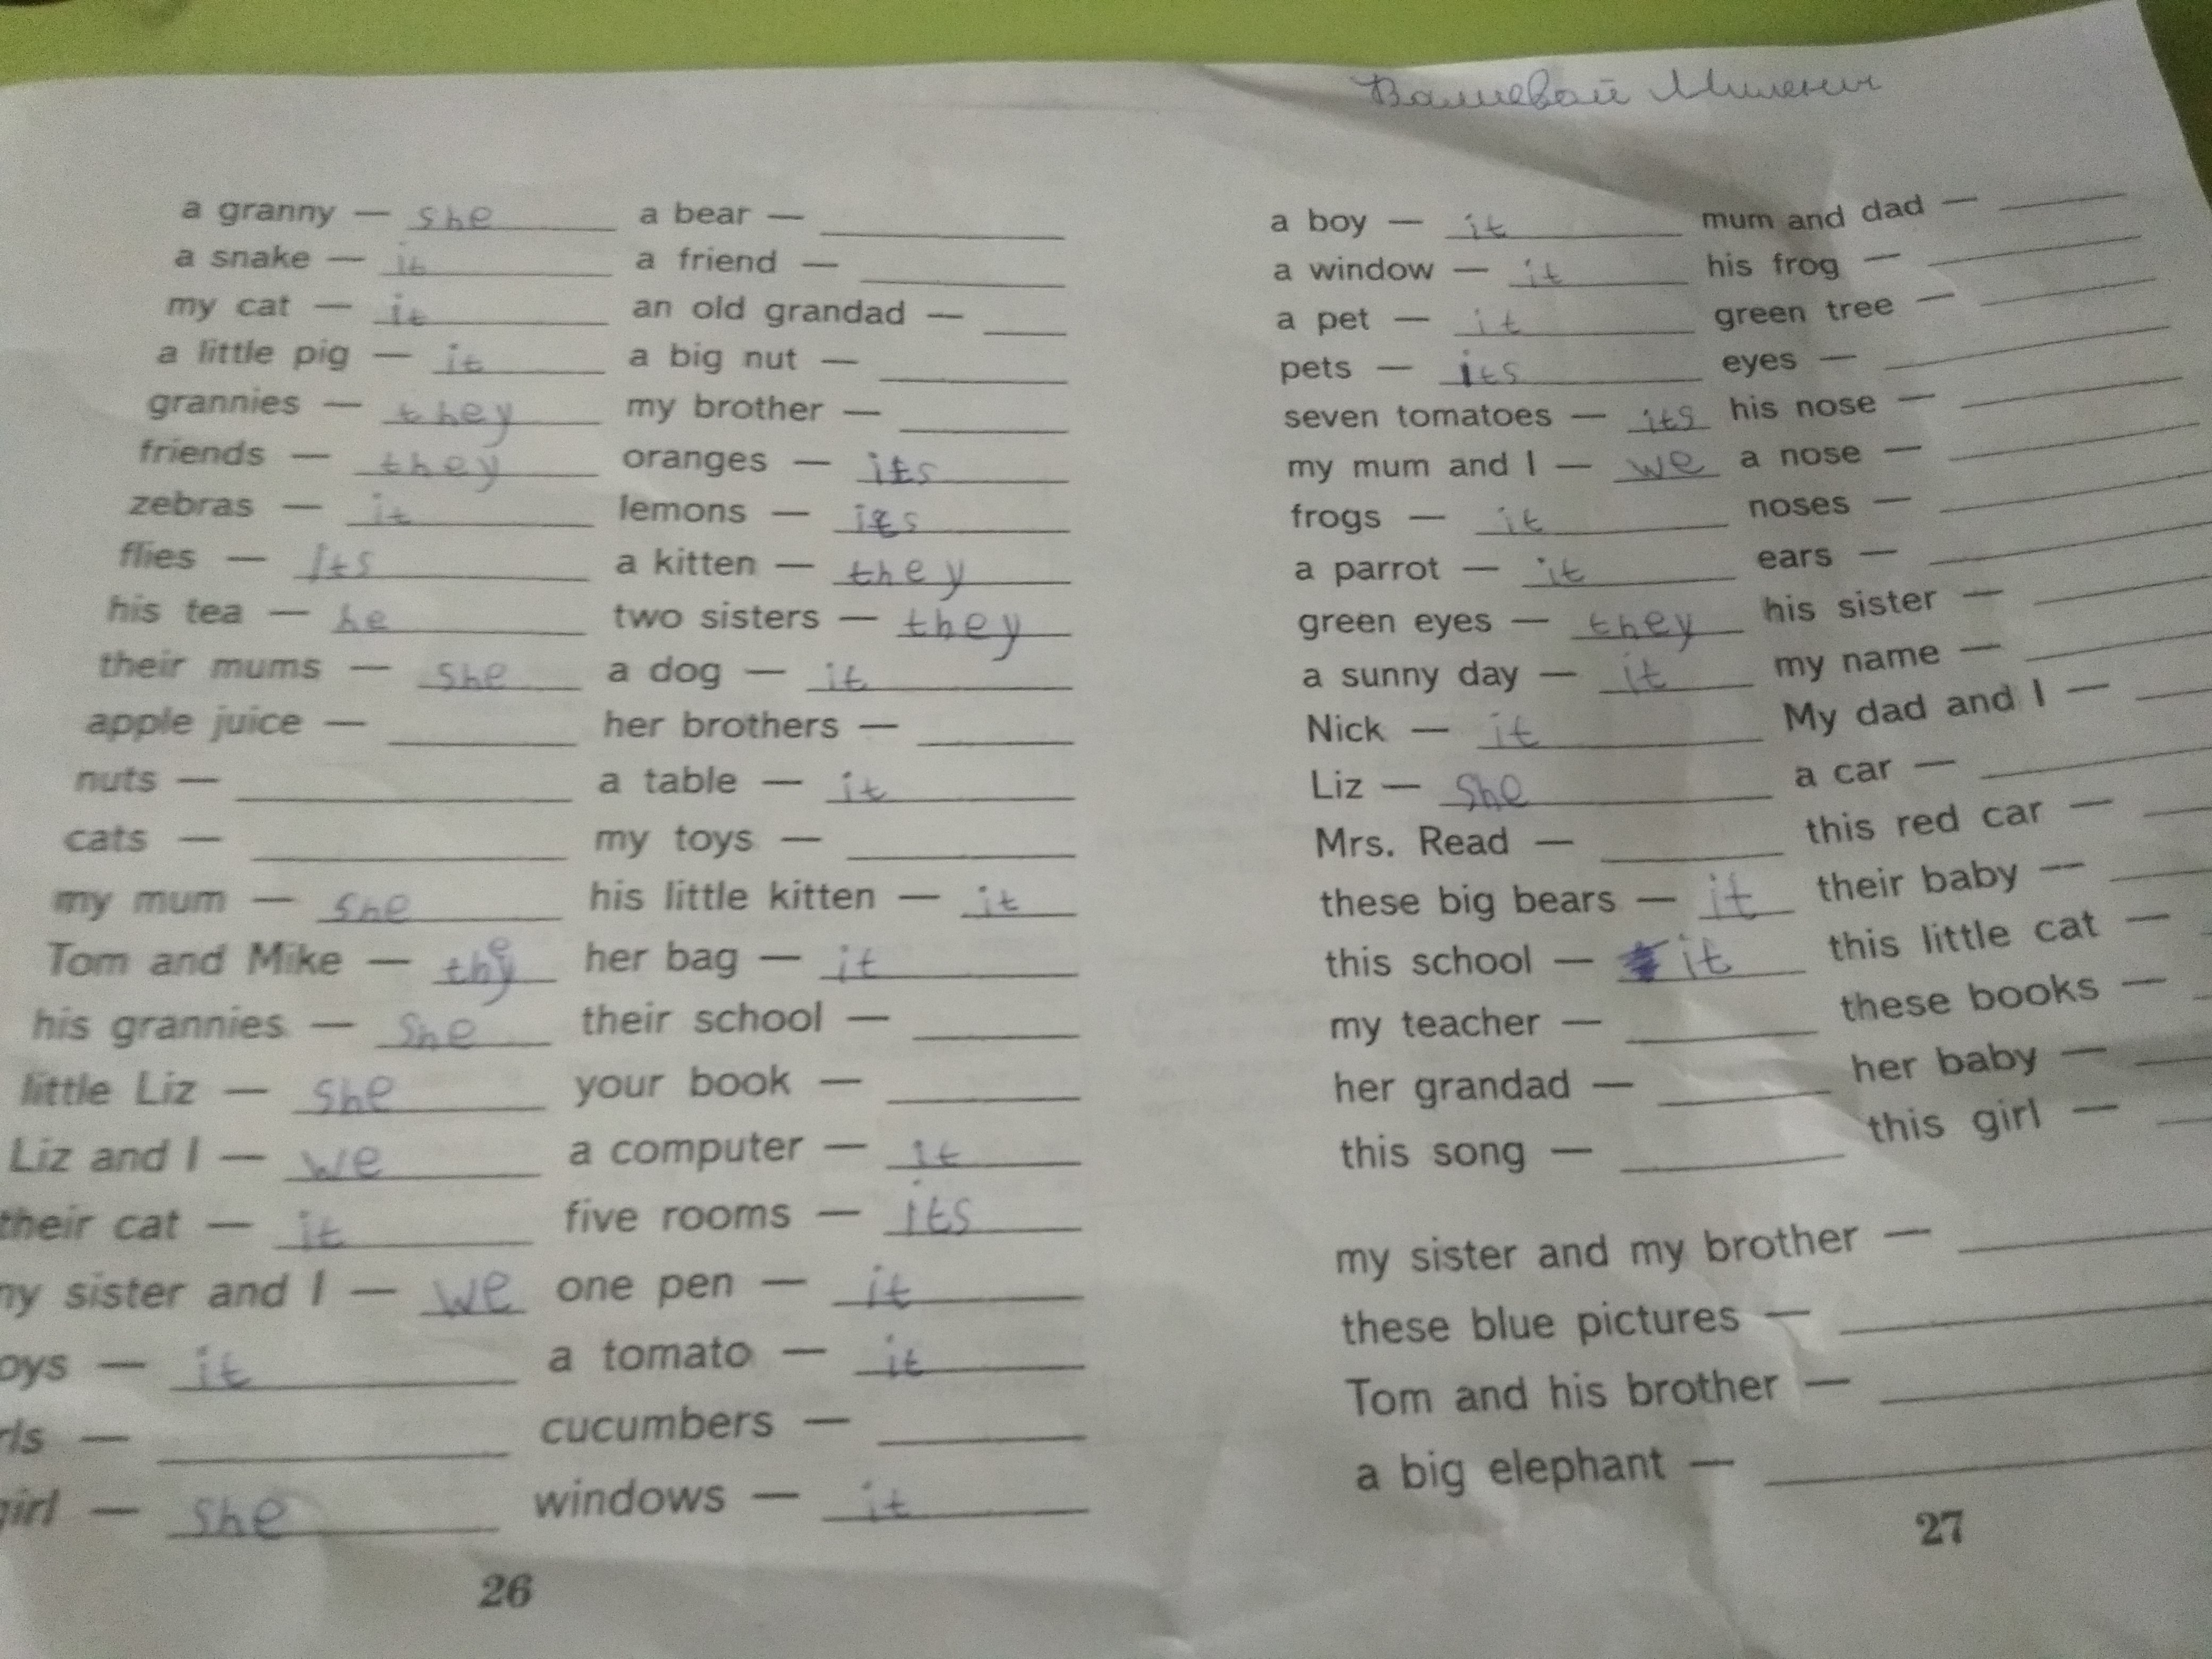 a granny — she
a snake — it
my cat — it
a little pig — it
grannies — they
friends — they
zebras — it
flies — Its
his tea — he
their mums — she
apple juice —
nuts —
cats —
my mum — she
Tom and Mike — they
his grannies — she
little Liz — she
Liz and I — we
their cat — it
ny sister and I — we
oys — it
rls —
girl — she
a bear —
a friend —
an old grandad —
a big nut —
my brother —
oranges — its
lemons — its
a kitten — they
two sisters — they
a dog — it
her brothers —
a table — it
my toys —
his little kitten — it
her bag — it
their school —
your book —
a computer — it
five rooms — its
one pen — it
a tomato — it
cucumbers —
windows — it
26
a boy — it
a window — it
a pet — it
pets — its
seven tomatoes — its
my mum and I — we
frogs — it
a parrot — it
green eyes — they
a sunny day — it
Nick — it
Liz — she
Mrs. Read —
these big bears — it
this school — it
my teacher —
her grandad —
this song —
mum and dad —
his frog —
green tree —
eyes —
his nose —
a nose —
noses —
ears —
his sister —
my name —
My dad and I —
a car —
this red car —
their baby —
this little cat —
these books —
her baby —
this girl —
my sister and my brother —
these blue pictures —
Tom and his brother —
a big elephant —
27